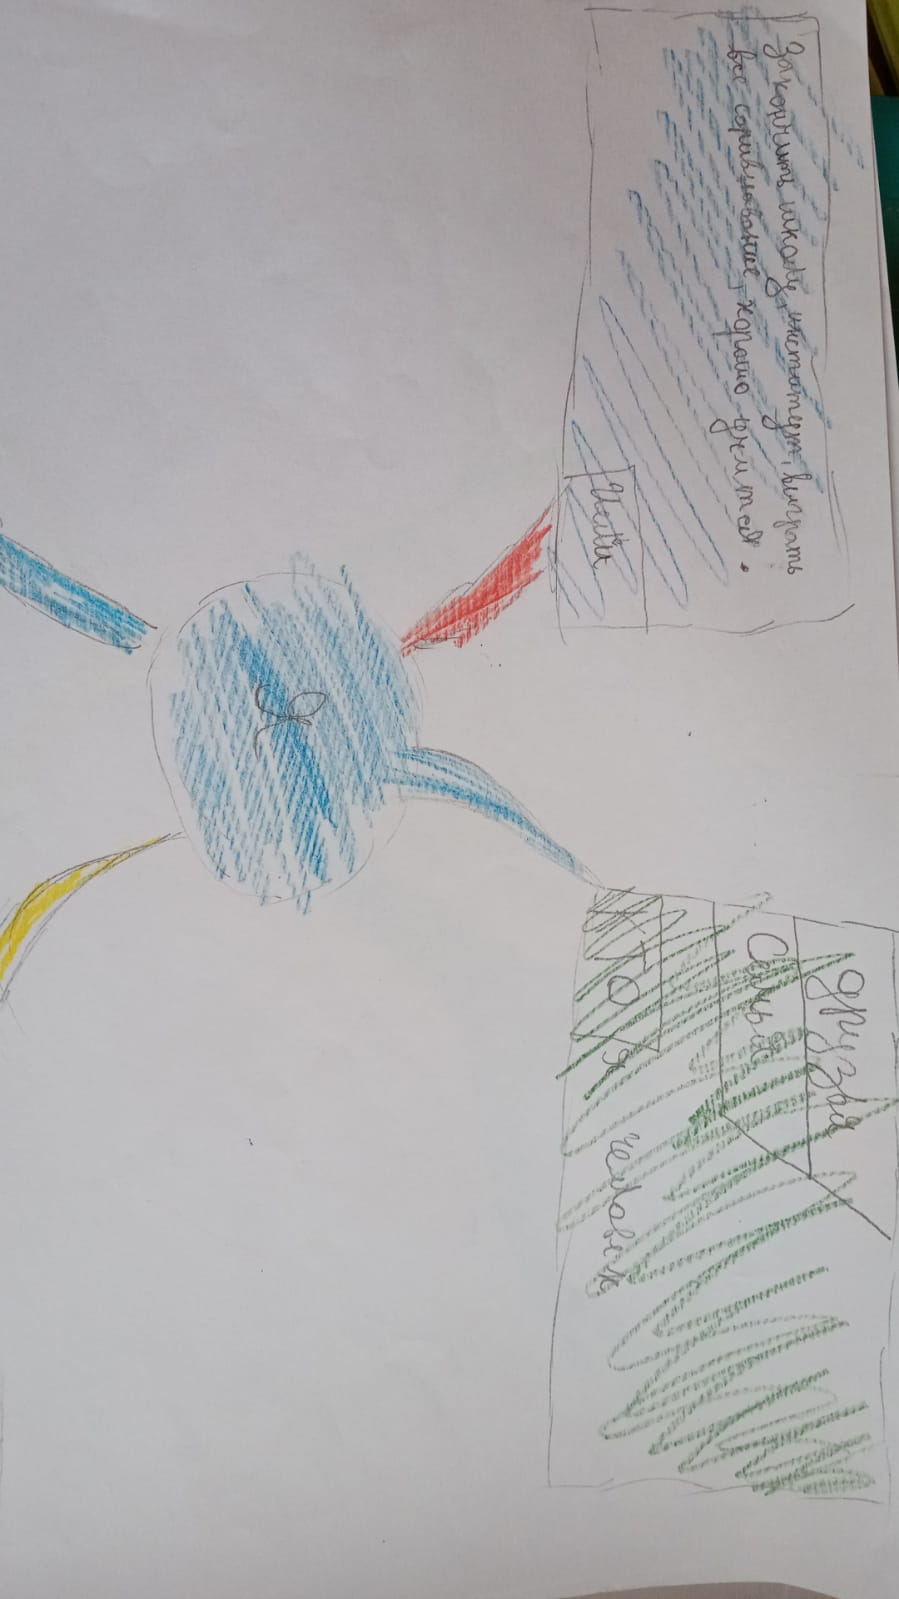 Закончить школу, институт, выграть
все соривнование, хорошо учится.
Цели
друзья
Семья
КТО я
человек
Я